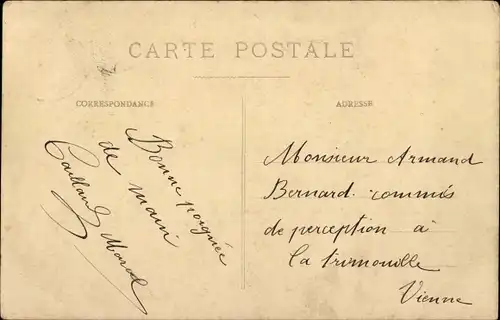 CARTE POSTALE
CORRESPONDANCE
ADRESSE
Bonne poignée
de main
Caillaud Marcel
Monsieur Armand
Bernard commis
de perception à
la trimouille
Vienne